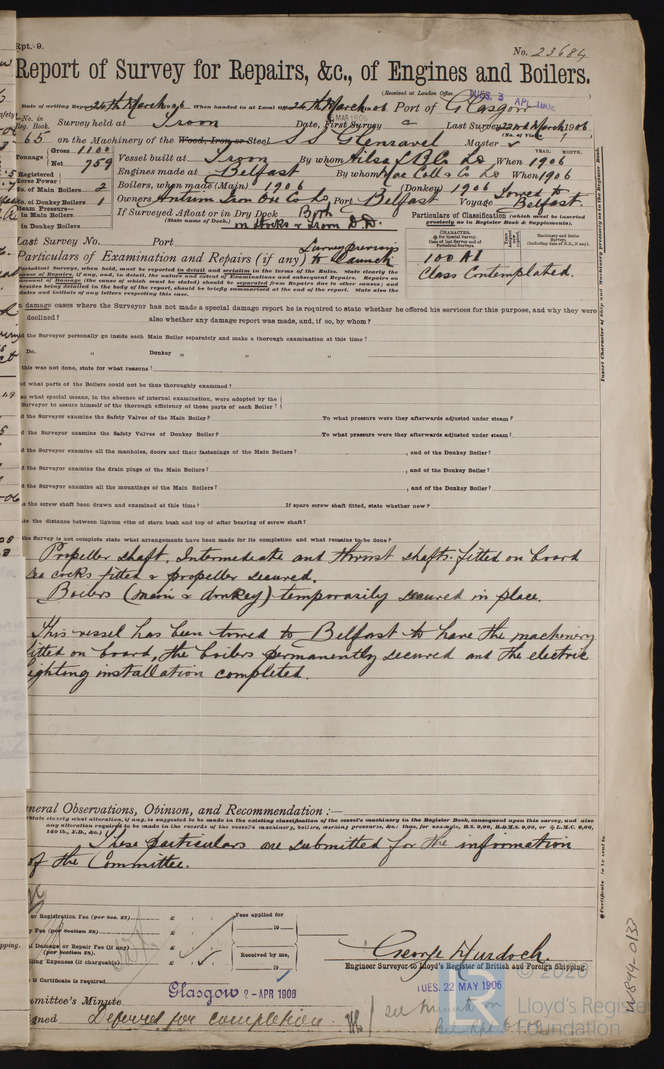 Rpt. 9.
No. 23684
Report of Survey for Repairs, &c., of Engines and Boilers.
(Received at London Office TUES. 3 APL 1906
Date of writing Report 26th March 06 When handed in at Local Office 26th March 06 Port of Glasgow
No. in Reg. Book. Survey held at Troon Date, First Survey Last Survey 22nd March 1906
(No. of Visits 1)
65 on the Machinery of the Wood, Iron or Steel S S Glenravel Master
Tonnage Gross 1100
Net 759
Vessel built at Troon By whom Ailsa S B Co Ld When 1906
Engines made at Belfast By whom Mac Coll & Co Ld When 1906
Registered Horse Power
No. of Main Boilers 2 Boilers, when made (Main) 1906 (Donkey) 1906
No. of Donkey Boilers 1 Owners Antrim Iron Ore Co Ld Port Belfast Voyage Towed to Belfast.
Steam Pressure—
in Main Boilers If Surveyed Afloat or in Dry Dock Both
(State name of Dock.) on Stocks & Troon D.D.
in Donkey Boilers
Particulars of Classification (which must be inserted precisely as in Register Book & Supplements).
Last Survey No. Port
Particulars of Examination and Repairs (if any) Survey previous to Launch
100 A1
Class Contemplated.
Periodical Surveys, when held, must be reported in detail and seriatim in the terms of the Rules. State clearly the
besides being detailed in the body of the report, should be briefly summarised at the end of the report. State also the
dates and initials of any letters respecting this case.
Insert Character of Ship and Machinery precisely as in the Register Book.
In damage cases where the Surveyor has not made a special damage report he is required to state whether he offered his services for this purpose, and why they were
declined? also whether any damage report was made, and, if so, by whom?
d the Surveyor personally go inside each Main Boiler separately and make a thorough examination at this time?
Do. „ Donkey „ „ „
this was not done, state for what reasons?
d what parts of the Boilers could not be thoroughly examined?
so what special means, in the absence of internal examination, were adopted by the
Surveyor to assure himself of the thorough efficiency of those parts of each Boiler?
d the Surveyor examine the Safety Valves of the Main Boiler? To what pressure were they afterwards adjusted under steam?
d the Surveyor examine the Safety Valves of Donkey Boiler? To what pressure were they afterwards adjusted under steam?
d the Surveyor examine all the manholes, doors and their fastenings of the Main Boilers? , and of the Donkey Boiler?
d the Surveyor examine the drain plugs of the Main Boilers? , and of the Donkey Boiler?
d the Surveyor examine all the mountings of the Main Boilers? , and of the Donkey Boiler?
s the screw shaft been drawn and examined at this time? If spare screw shaft fitted, state whether new?
te the distance between lignum vitæ of stern bush and top of after bearing of screw shaft?
the Survey is not complete state what arrangements have been made for its completion and what remains to be done?
Propeller shaft, Intermediate and thrust shafts fitted on board
Sea cocks fitted & propeller secured.
Boilers (main & donkey) temporarily secured in place.
This vessel has been towed to Belfast to have the machinery
fitted on board, the boilers permanently secured and the electric
lighting installation completed.
General Observations, Opinion, and Recommendation:—
(State clearly what alteration, if any, is suggested to be made in the existing classification of the vessel's machinery in the Register Book, consequent upon this survey, and also
any alteration required to be made in the records of the vessel's machinery, boilers, working pressures, &c.: thus, for example, B.S. 9,00, B.&M.S. 9,00, or L.M.C. 9,00,
140 lb., F.D., &c.)
These particulars are submitted for the information
of the Committee.
or Registration Fee (per Sec. 27) £ Fees applied for
y Fee (per Section 28) £ 19
l Damage or Repair Fee (if any) (per Section 28). £ Received by me,
lling Expenses (if chargeable) £ 19
George Murdoch.
Engineer Surveyor to Lloyd's Register of British and Foreign Shipping.
if Certificate is required
Committee's Minute Glasgow 2 - APR 1906
TUES. 22 MAY 1906
signed Deferred for completion
see minute on
© 2020
Lloyd's Register
Foundation
W844-0137